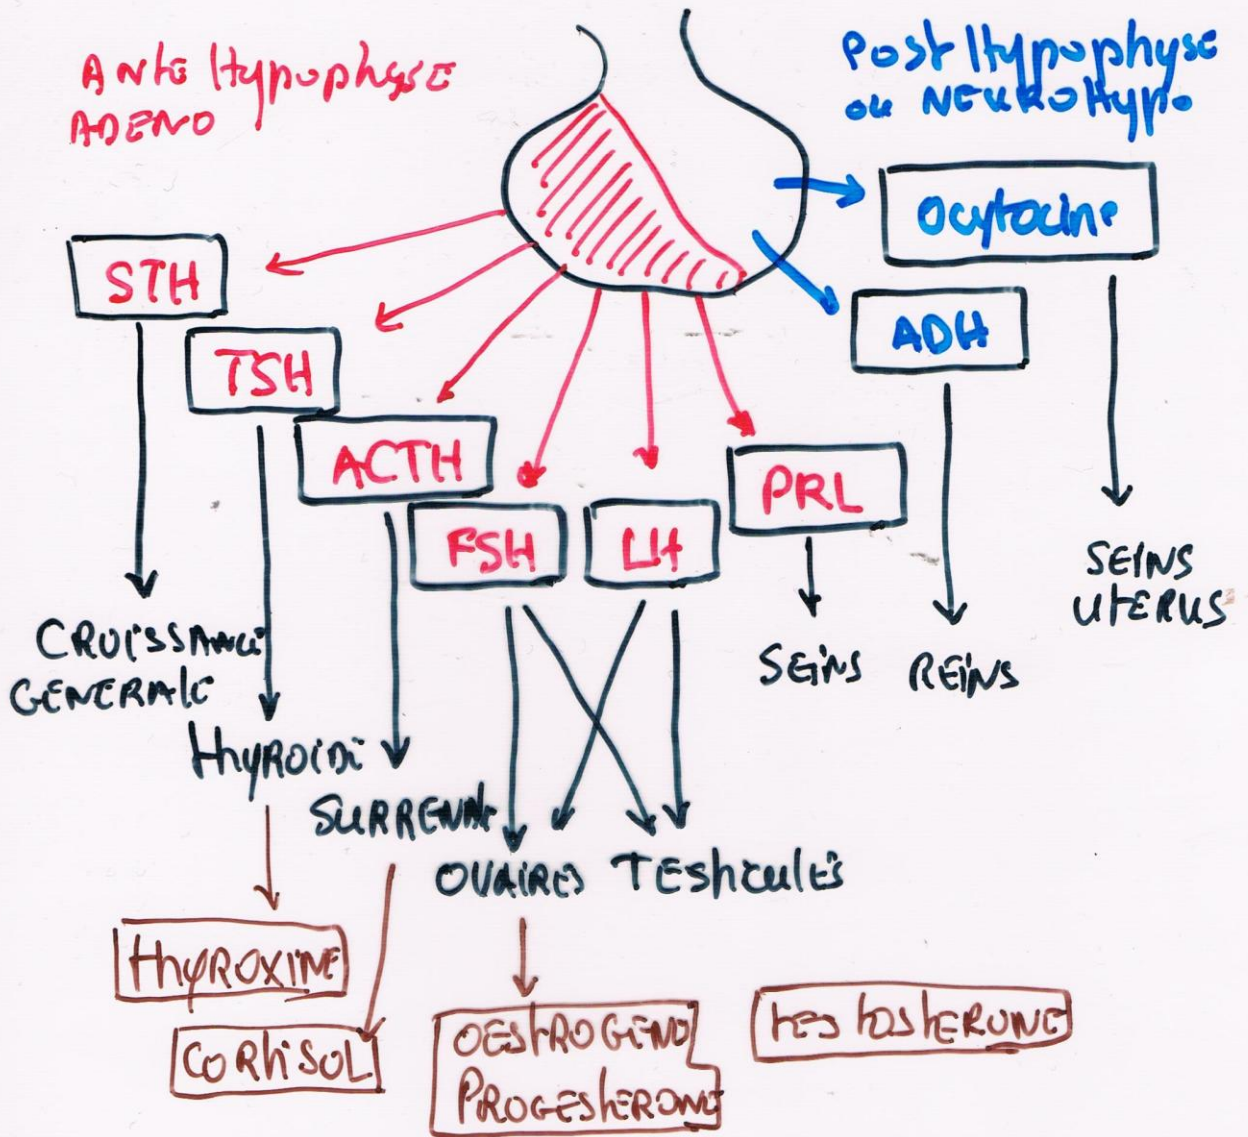 Ante Hypophyse
ADENO
Post Hypophyse
ou NEUROHypo
Ocytocine
STH
ADH
TSH
ACTH
PRL
FSH
LH
SEINS
UTERUS
CROISSANCE
GENERALE
SEINS
REINS
THYROIDE
SURRENALE
OVAIRES
TESTICULES
THYROXINE
CORTISOL
OESTROGENO
PROGESTERONE
TESTOSTERONE